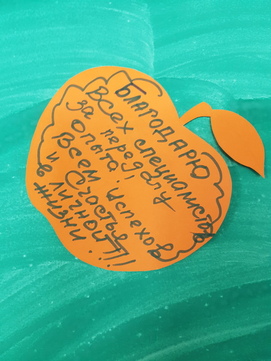 БЛАГОДАРЮ
Всех специалистов
за передачу
опыта! Успехов
Всем счастья
и в личной
жизни!!!